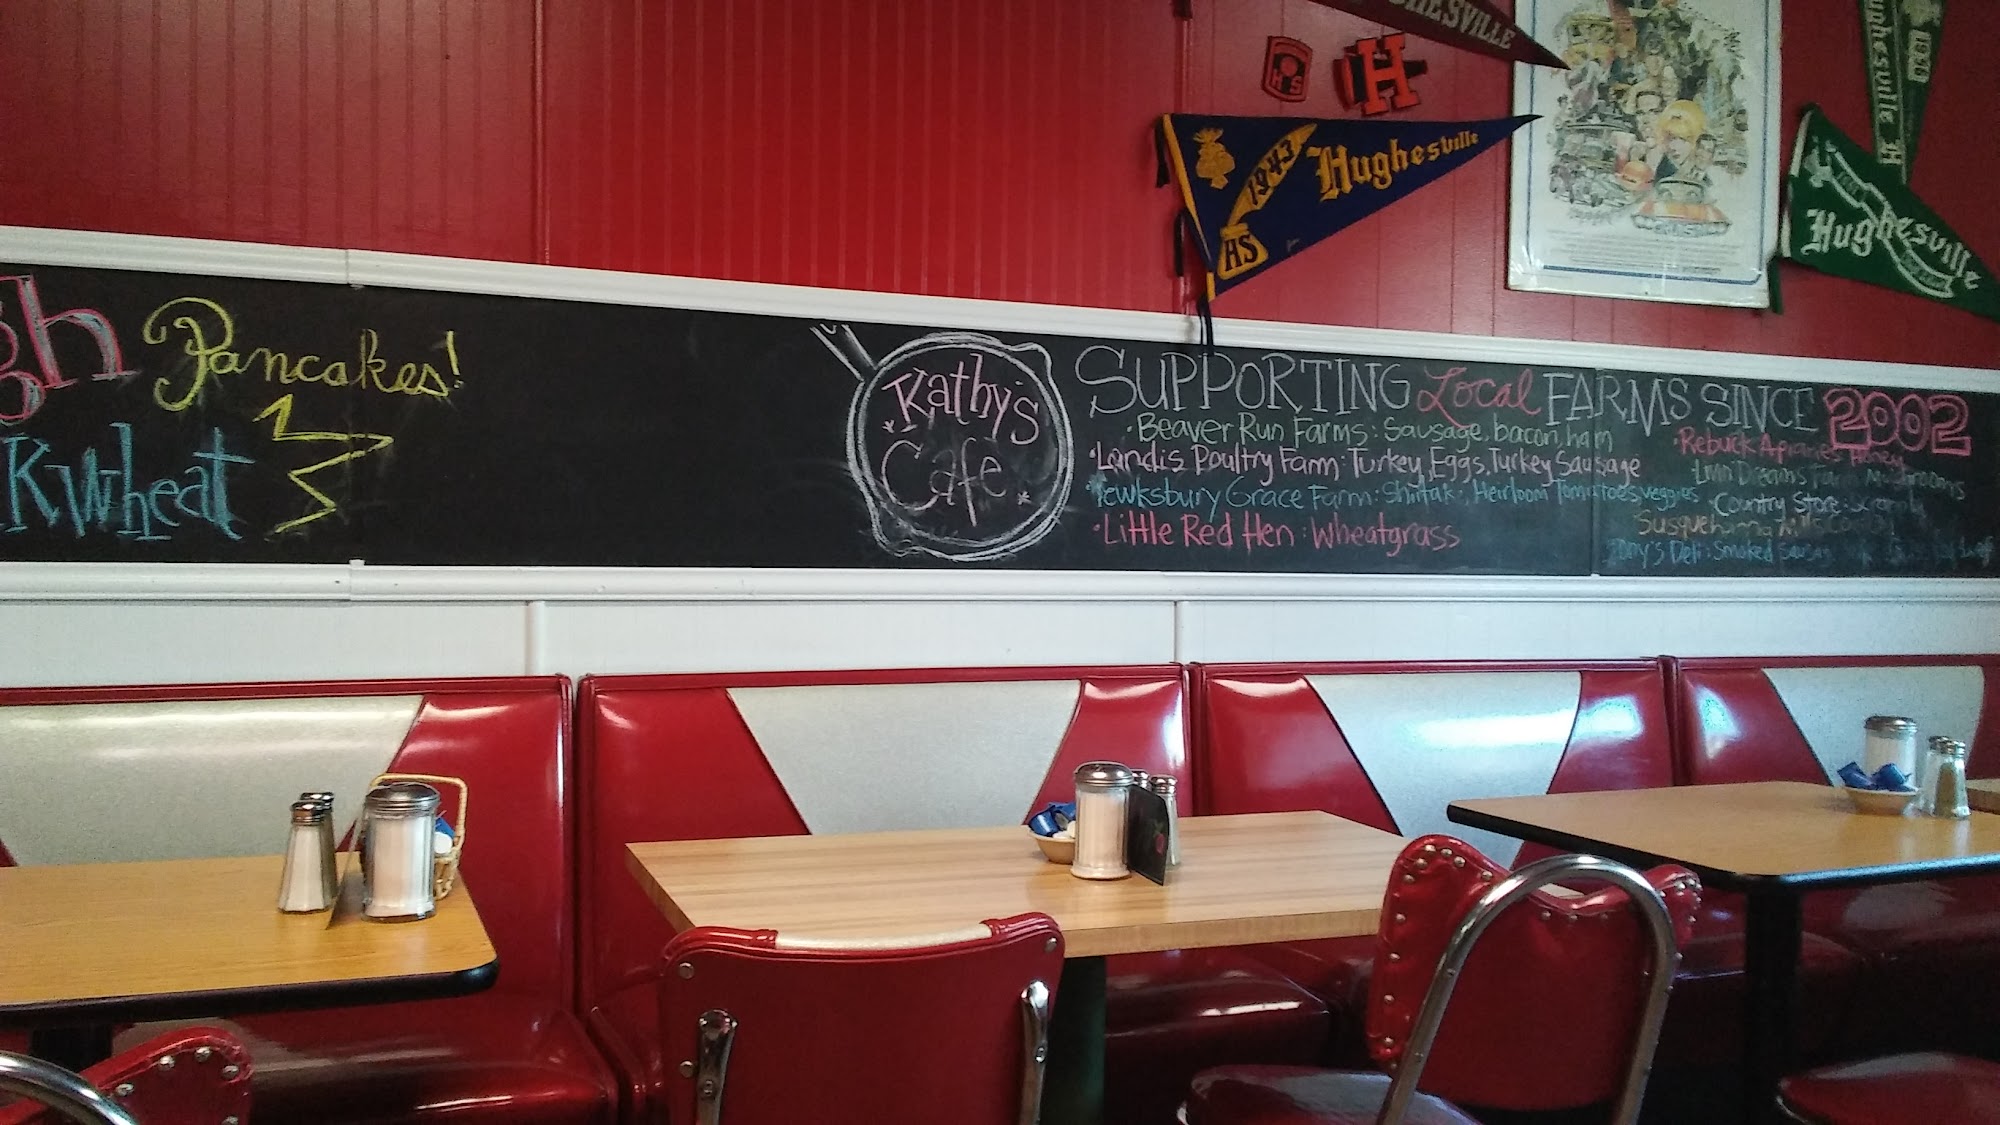 HESVILLE
HS
H
1943
Hughesville
HS
Hughesville
Hughesville
H
gh Pancakes!
Kwheat
Kathy's
Cafe
SUPPORTING Local FARMS SINCE 2002
• Beaver Run Farms: Sausage, bacon, ham
• Landis Poultry Farm: Turkey, Eggs, Turkey Sausage
• Tewksbury Grace Farm: Shiitake, Heirloom Tomatoes, veggies
• Little Red Hen: Wheatgrass
• Rebuck Apiaries Honey
Dreams Farm Mushrooms
• Country Store:
Susquehanna Mills
Deli: Smoked Sausage